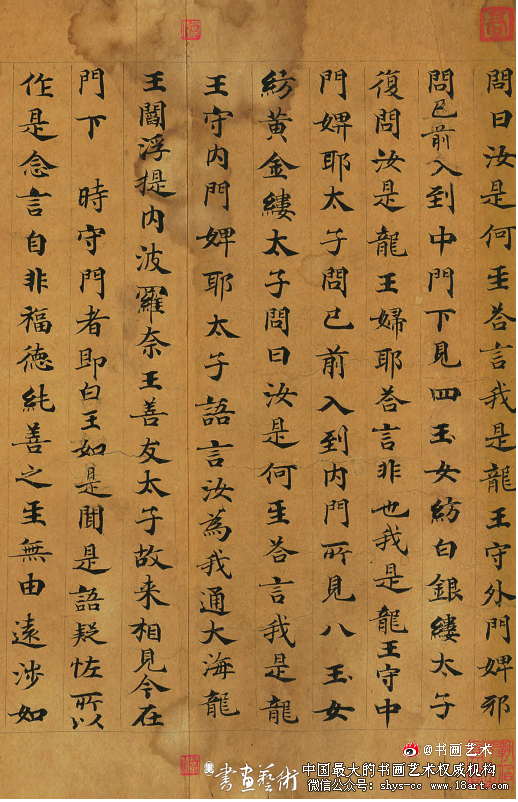 問曰汝是何𤯔荅言我是龍王守外門婢邪
問已前入到中門下見四玉女紡白銀縷太子
復問汝是龍王婦耶荅言非也我是龍王守中
門婢耶太子問已前入到内門所見八玉女
紡黄金縷太子問曰汝是何𤯔荅言我是龍
王守内門婢耶太子語言汝為我通大海龍
王閻浮提内波羅奈王善友太子故来相見今在
門下 時守門者即白王如是聞是語疑恠所以
作是念言自非福德純善之𤯔無由遠涉如
@书画艺术
書畫藝術
中国最大的书画艺术权威机构
微信公众号：shys-cc www.18art.com